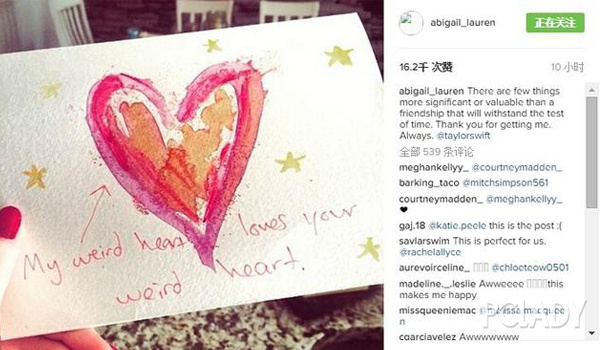 My weird heart loves your
weird heart.
abigail_lauren
正在关注
16.2千 次赞
10 小时
abigail_lauren There are few things
more significant or valuable than a
friendship that will withstand the test
of time. Thank you for getting me.
Always. @taylorswift
全部 539 条评论
meghankellyy_ @courtneymadden_
barking_taco @mitchsimpson561
courtneymadden_ @meghankellyy_
❤
gaj.18 @katie.peele this is the post :(
savlarswim This is perfect for us.
@rachelallyce
aurevoirceline_ @chloeteow0501
madeline._.leslie Awweeee this
makes me happy
missqueeniemac @melissa.macquee
n
cgarciavelez Awwwwwww
PCLADY